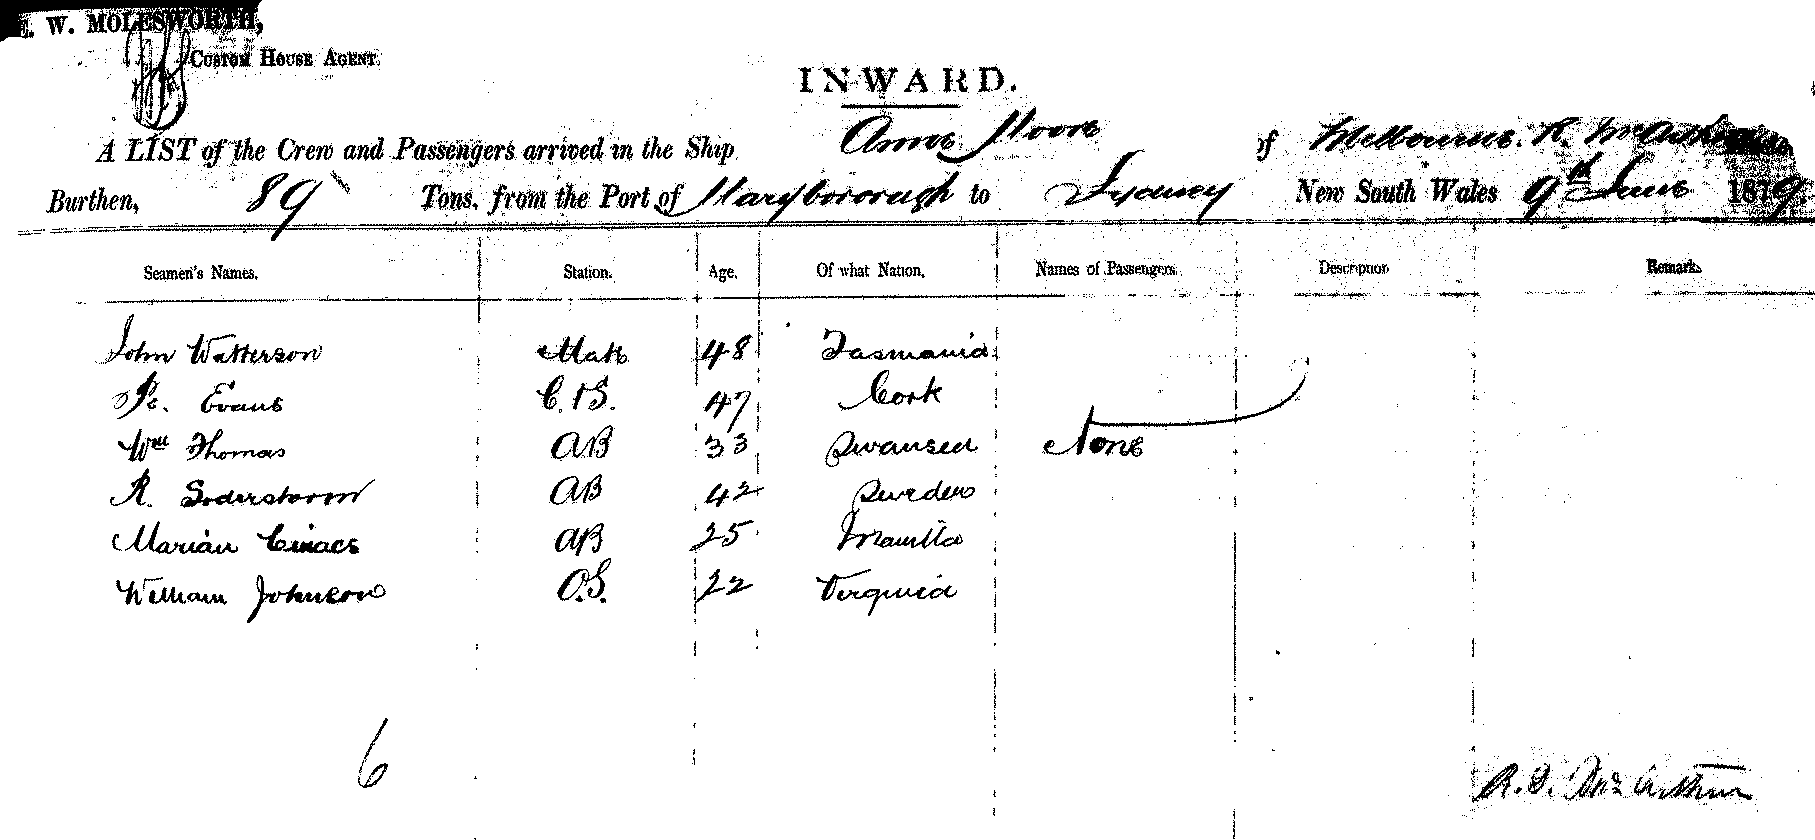 . W. MOLESWORTH,
CUSTOM HOUSE AGENT.
INWARD.
A LIST of the Crew and Passengers arrived in the Ship Moore of Melbourne. R. McArthur
Burthen, 89 Tons, from the Port of Maryborough to Sydney New South Wales 9th June 1879.
Seamen's Names. Station. Age. Of what Nation. Names of Passengers Description Remarks
John Watterson Mate 48 Tasmania
Evans C. & S. 47 Cork
Wm Thomas AB 33 Swansea None
R. Soderstorm AB 42 Sweden
Marian AB 25 Manilla
William Johnson O.S. 22 Virginia
6
McArthur